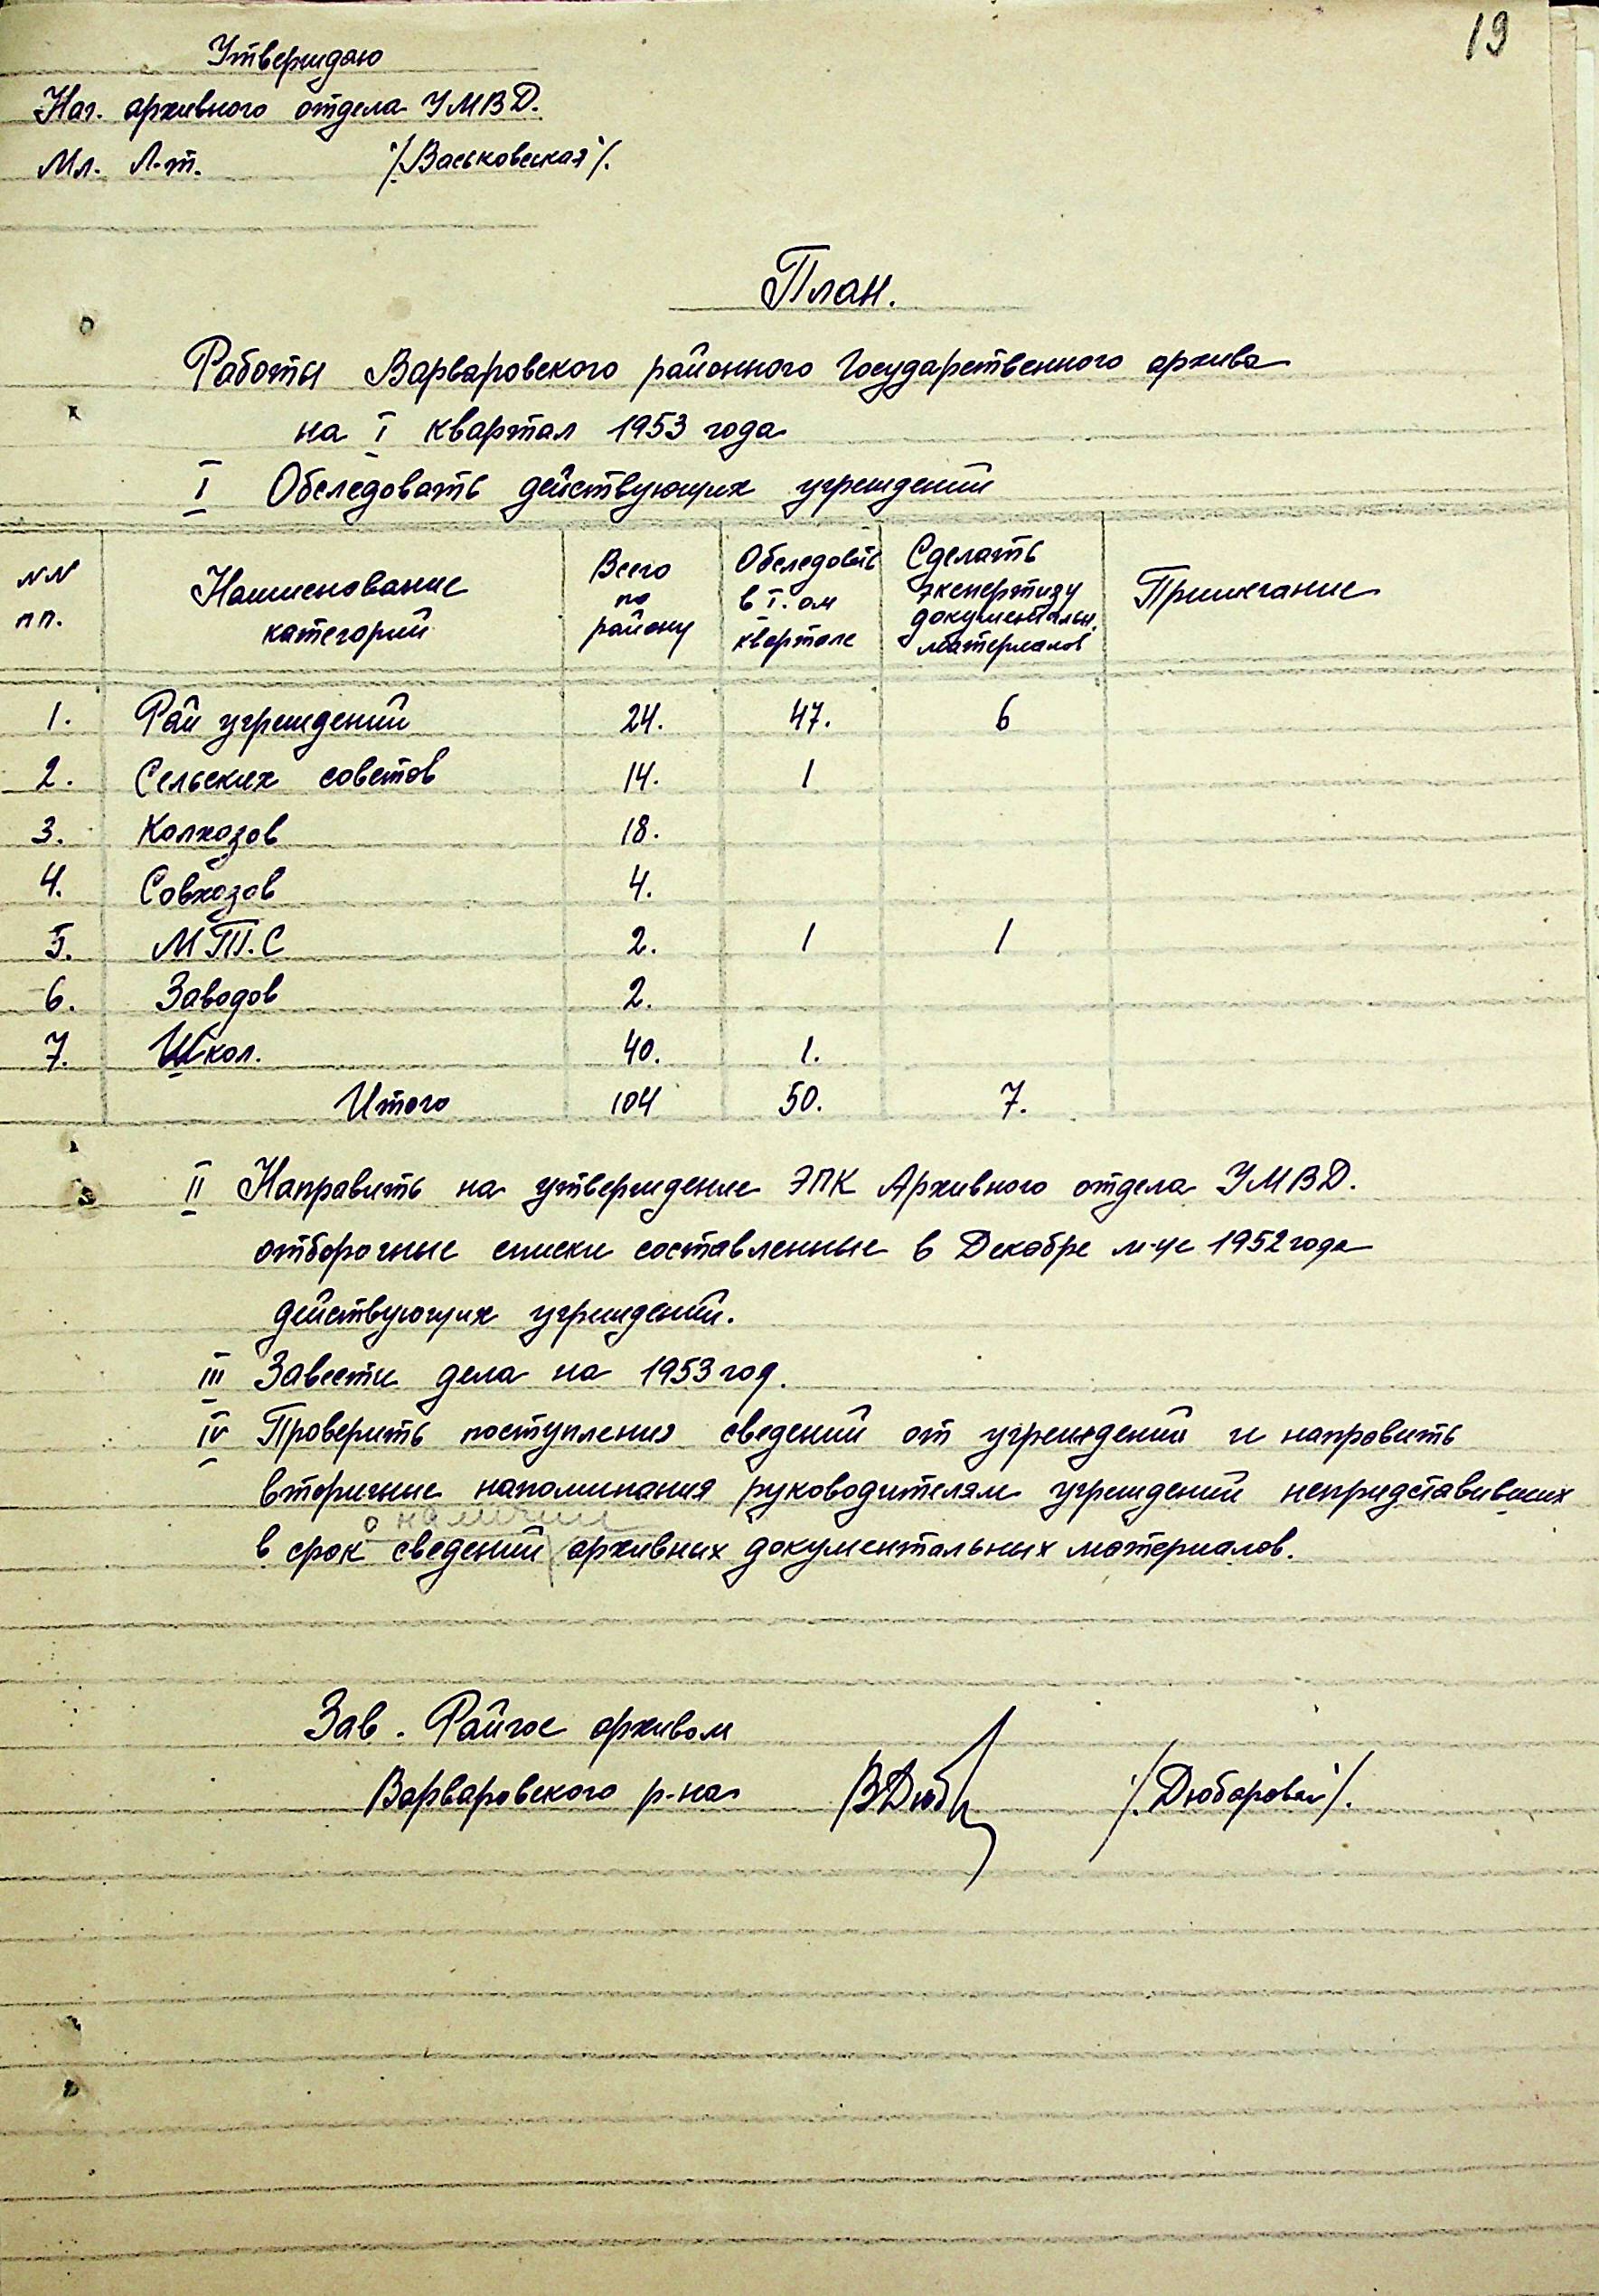 19
Утверждаю
Нач. архивного отдела УМВД.
Мл. Л-т. /Васьковская/.
План.
Работы Варваровского районного Государственного архива
на I квартал 1953 года
I Обследовать действующих учреждений
NN пп. | Наименование категорий | Всего по району | Обследовать в I-ом квартале | Сделать экспертизу документальн. материалов | Примечание
1. Рай учреждений 24. 47. 6
2. Сельских советов 14. 1
3. Колхозов 18.
4. Совхозов 4.
5. МТ.С 2. 1 1
6. Заводов 2.
7. Школ. 40. 1.
Итого 104 50. 7.
II Направить на утверждение ЭПК Архивного отдела УМВД.
отборочные списки составленные в Декабре м-це 1952 года
действующих учреждений.
III Завести дела на 1953 год.
IV Проверить поступления сведений от учреждений и направить
вторичные напоминания руководителям учреждений непридставивших
о наличии
в срок сведений архивных документальных материалов.
Зав. Райгос архивом
Варваровского р-на ВДюб /Дюбарова/.